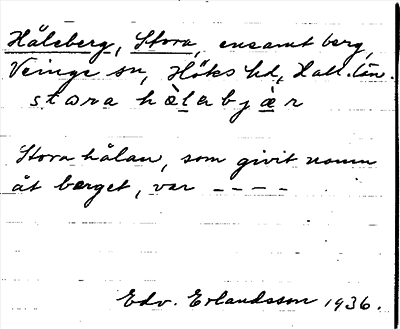 Håleberg, Stora, ensamt berg,
Veinge sn, Höks hd, Hall. län.
stora hàlabjàr
Stora hålan, som givit namn
åt berget, var ----
Edv. Erlandsson 1936.